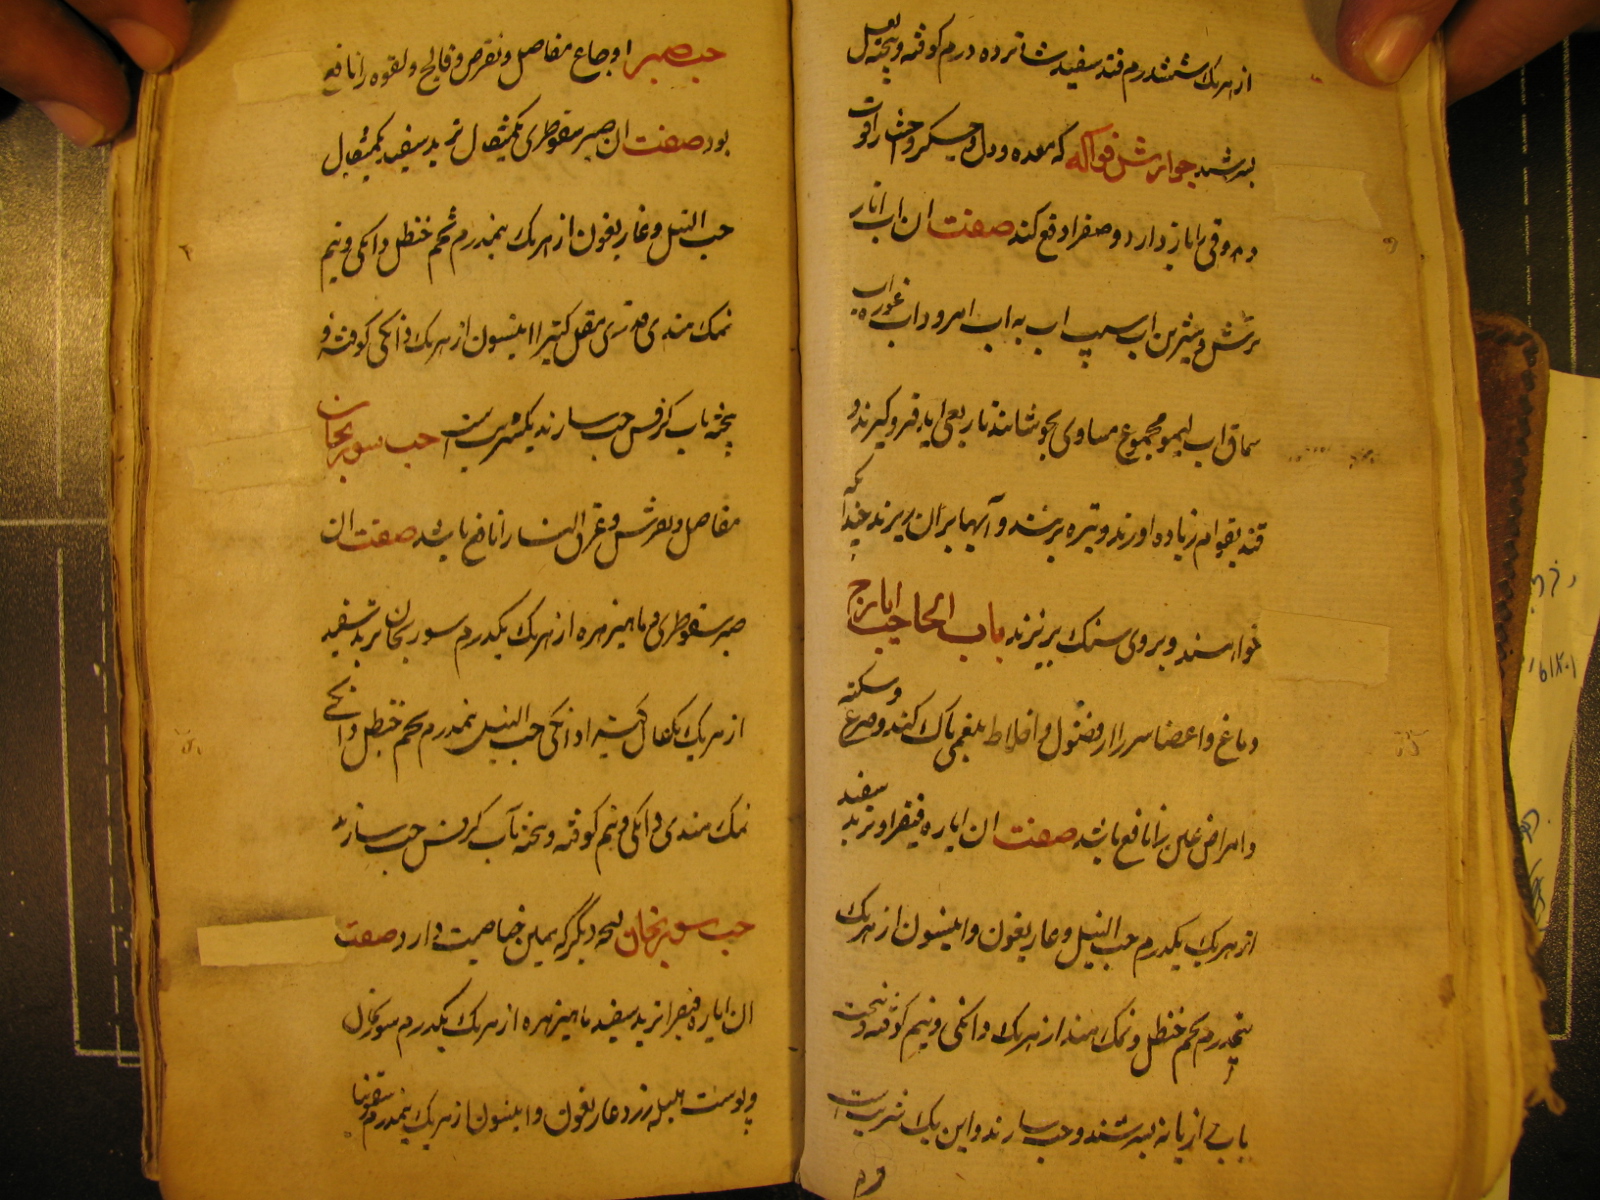 از هریک ششدرم قند سفید شانزده درم کوفته و بیخته بعسل
بسرشند جوارش فواکه که معده و دل و جیکر و احشا را قوت
دهد و قی را باز دارد و صفرا دفع کند صفت ان اب انار
ترش و شیرین اب سیب اب به اب امرود اب غوره اب
سماق اب لیمو مجموع مساوی بجوشانند تا ربعی اید فرو گیرند و
قند بقوام زیاده اورند و تیره برشند و آبها بران ریزند چندانکه
خواهند و بروی سنک بریزند باب الحاء حب ایارج
دماغ و اعضا سر را از فضول و اخلاط بلغمی پاک کند و صرع و سکته
و امراض را نافع باشد صفت ان ایاره فیقرا و تربد سفید
از هریک یکدرم حب النیل و غاریقون و انیسون از هریک
نیمدرم شحم حنظل و نمک هند از هریک دانکی و نیم کوفته و بیخته
باب رازیانه بسرشند و حب سازند و این یک شربتست
حب صبر اوجاع مفاصل و نقرص و فالج و لقوه را نافع
بود صفت ان صبر سقوطری یکمثقال تربد سفید یکمثقال
حب النیل و غاریقون از هریک نیمدرم شحم حنظل دانکی و نیم
نمک هندی مقل کتیرا انیسون از هریک دانکی کوفته و
بیخته باب کرفس حب سازند یکشربتست حب سورنجان
مفاصل و نقرس و عرق النسا را نافع باشد صفت ان
صبر سقوطری و ماهیزهره از هریک یکدرم سورنجان تربد سفید
از هریک یکمثقال کتیرا دانکی حب النیل نیمدرم شحم حنظل دانکی
نمک هندی دانکی و نیم کوفته و بیخته بآب کرفس حب سازند
حب سورنجان نسخه دیگر که همین خاصیت دارد صفت
ان ایاره فیقرا تربد سفید ماهیزهره از هریک یکدرم سورنجان
و پوست هلیله زرد غاریقون و انیسون از هریک نیمدرم سقمونیا